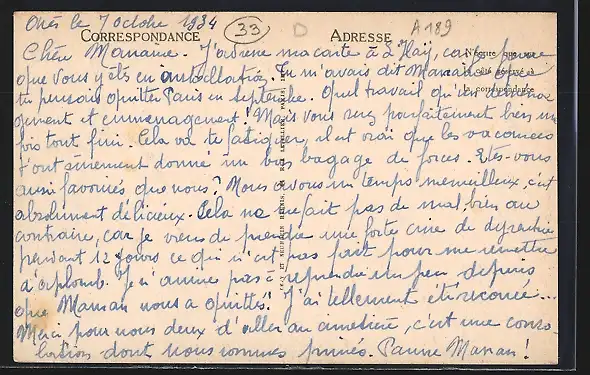 le 7 octobre 1934
33
D
A 189
CORRESPONDANCE
ADRESSE
Chère Marraine. J'adresse ma carte à l'Haÿ, car je pense
que vous y êtes en
N'écrire que
tu pensais quitter Paris en septembre. Quel travail qu'un déména-
la correspondance
gement et emménagement! Mais vous serez parfaitement bien une
fois tout fini. Cela va te fatiguer, il est vrai que les vacances
t'ont sûrement donné un bon bagage de forces. Etes-vous
aussi favorisés que nous? Nous avons un temps merveilleux, c'est
absolument délicieux. Cela ne me fait pas de mal bien au
contraire, car je viens de prendre une forte crise de
pendant 12 jours ce qui n'est pas fait pour me remettre
d'aplomb. Je n'arrive pas à reprendre un peu depuis
que Maman nous a quittés. J'ai tellement été secouée...
Merci pour nous deux d'aller au cimetière, c'est une conso
lation dont nous sommes privés. Pauvre Maman!